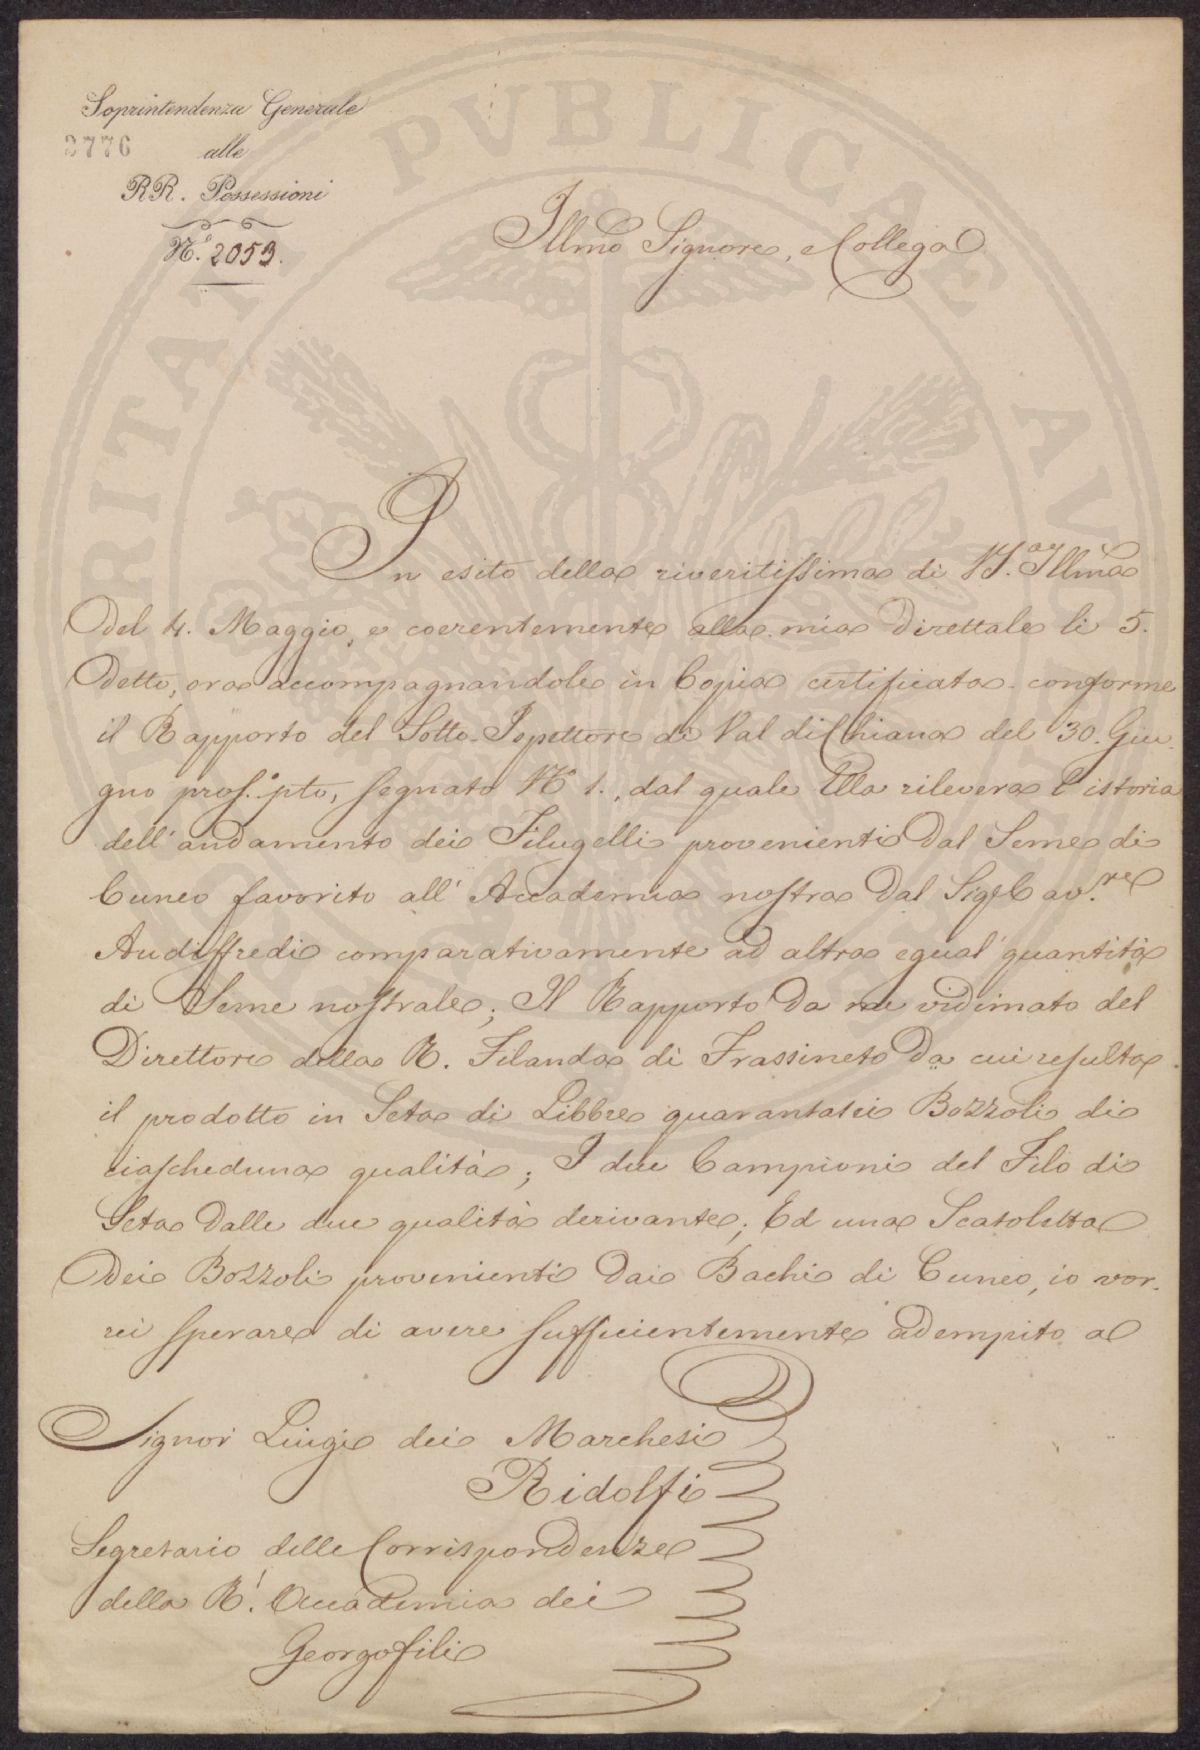 Soprintendenza Generale
3776 alle
RR. Possessioni
N.° 2059.
Illmo Signore, e Collega
In esito della riveritissima di V.S. Illma
del 4. Maggio, e coerentemente alla mia direttale li 5.
detto, ora accompagnandole in Copia certificata conforme
il Rapporto del Sotto-Ispettore di Val di Chiana del 30. Giu-
gno pros.° pto, segnato N° 1., dal quale Ella rileverà l'istoria
dell'andamento dei Filugelli provenienti dal Seme di
Cuneo favorito all'Accademia nostra dal Sig.r Cav.re
Audiffredi comparativamente ad altra egual quantità
di Seme nostrale; Il Rapporto da me vidimato del
Direttore della R. Filanda di Frassineto da cui resulta
il prodotto in Seta di Libbre quarantasei Bozzoli di
ciascheduna qualità; I due Campioni del Filo di
Seta dalle due qualità derivante; Ed una Scatoletta
dei Bozzoli provenienti dai Bachi di Cuneo, io vor-
rei sperare di avere sufficientemente adempito a
Signor Luigi dei Marchesi
Ridolfi
Segretario delle Corrispondenze
della R. Accademia dei
Georgofili